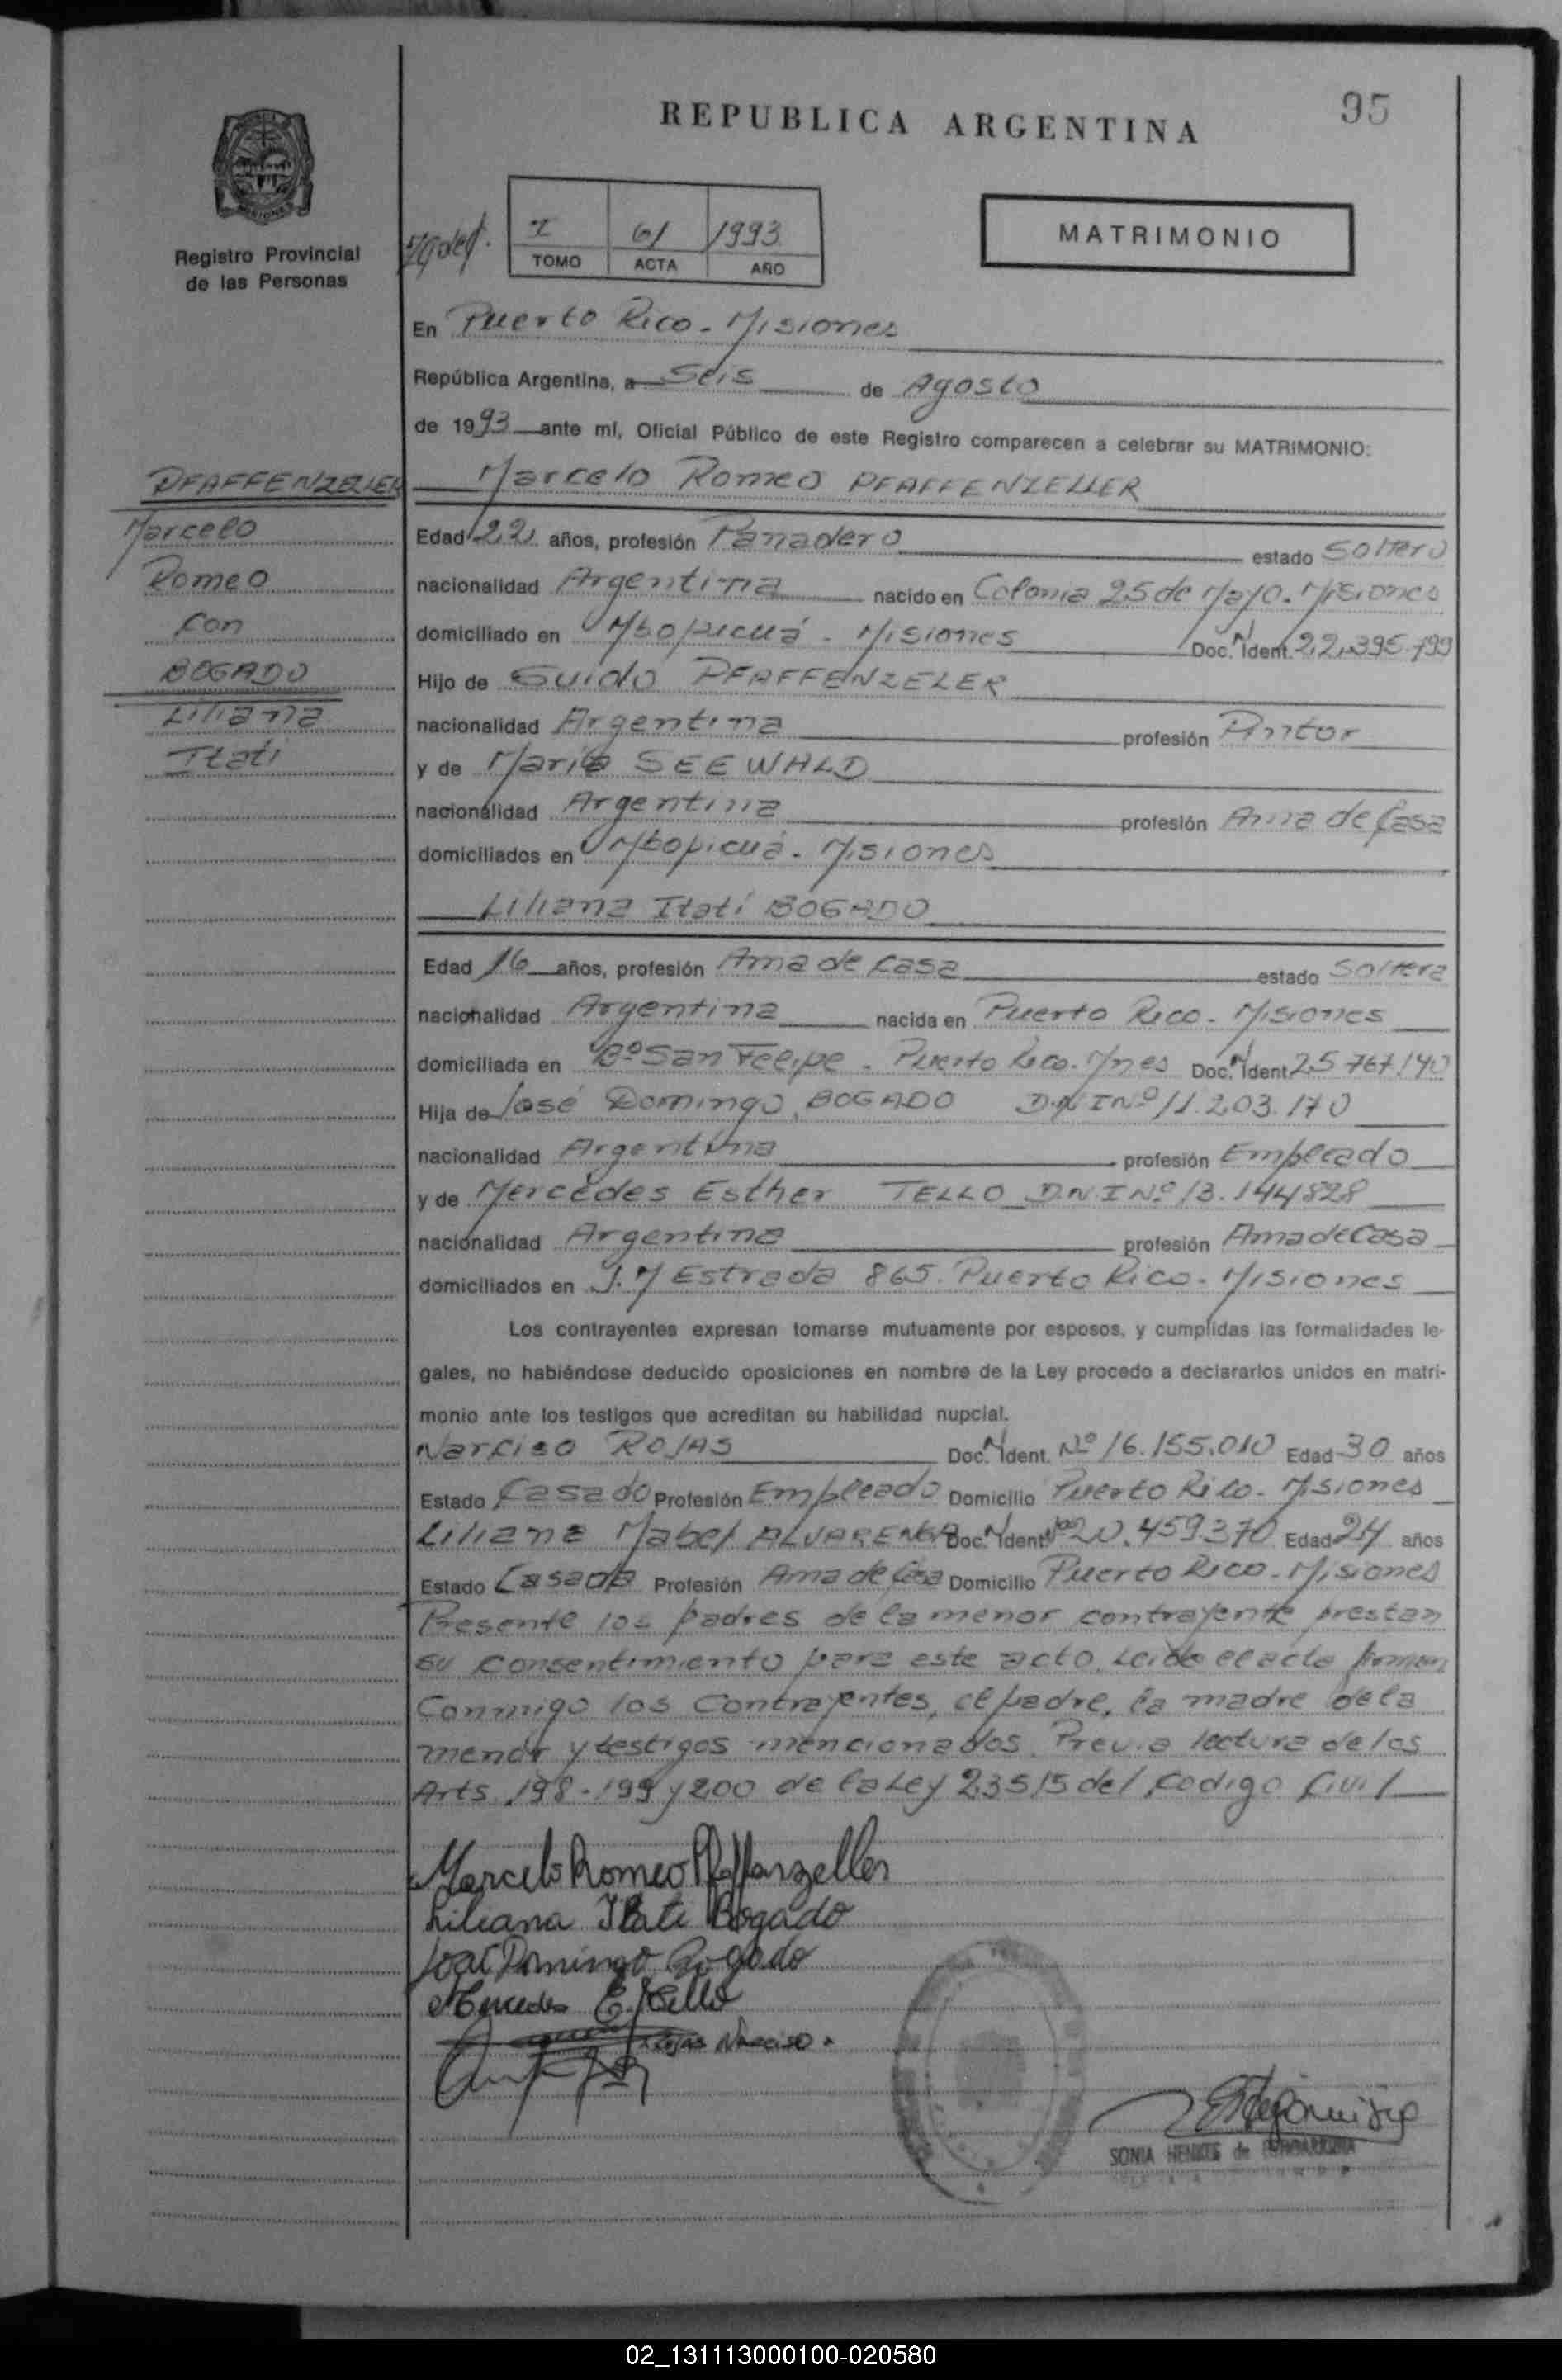 95
REPUBLICA ARGENTINA
Registro Provincial
de las Personas
I 61 1993
TOMO ACTA AÑO
MATRIMONIO
En Puerto Rico - Misiones
República Argentina, a Seis de Agosto
de 1993 ante mí, Oficial Público de este Registro comparecen a celebrar su MATRIMONIO:
PFAFFENZELLER
Marcelo
Romeo
con
BOGADO
Liliana
Itatí
Marcelo Romeo PFAFFENZELLER
Edad 22 años, profesión Panadero estado Soltero
nacionalidad Argentina nacido en Colonia 25 de Mayo - Misiones
domiciliado en Mbopicuá - Misiones Doc. N Ident. 22.395.799
Hijo de Guido PFAFFENZELER
nacionalidad Argentina profesión Pintor
y de Maria SEEWALD
nacionalidad Argentina profesión Ama de Casa
domiciliados en Mbopicuá - Misiones
Liliana Itatí BOGADO
Edad 16 años, profesión Ama de Casa estado Soltera
nacionalidad Argentina nacida en Puerto Rico - Misiones
domiciliada en Bº San Felipe - Puerto Rico - Mnes Doc. N Ident 25.767.140
Hija de José Domingo BOGADO DNI Nº 11.203.170
nacionalidad Argentina profesión Empleado
y de Mercedes Esther TELLO DNI Nº 13.144828
nacionalidad Argentina profesión Ama de Casa
domiciliados en J.M Estrada 865. Puerto Rico - Misiones
Los contrayentes expresan tomarse mutuamente por esposos, y cumplidas las formalidades le-
gales, no habiéndose deducido oposiciones en nombre de la Ley procedo a declararlos unidos en matri-
monio ante los testigos que acreditan su habilidad nupcial.
Narciso ROJAS Doc. N Ident. Nº 16.155.010 Edad 30 años
Estado Casado Profesión Empleado Domicilio Puerto Rico - Misiones
Liliana Mabel ALVARENGA Doc. N Ident. Nº 20.459370 Edad 24 años
Estado Casada Profesión Ama de Casa Domicilio Puerto Rico - Misiones
Presente los padres de la menor contrayente prestan
su consentimiento para este acto. Leída el acta firman
Conmigo los Contrayentes, el padre, la madre de la
menor y testigos mencionados. Previa lectura de los
Arts. 198-199 y 200 de la Ley 23515 del Codigo Civil
Marcelo Romeo Pfaffenzeller
Liliana Itati Bogado
José Domingo Bogado
Mercedes E. Tello
Rojas Narciso
SONIA HENKES de
02_131113000100-020580